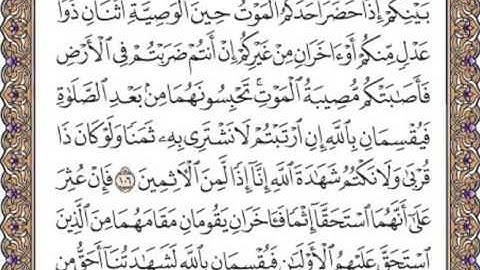 بَيْنِكُمْ إِذَا حَضَرَ أَحَدَكُمُ الْمَوْتُ حِينَ الْوَصِيَّةِ اثْنَانِ ذَوَا
عَدْلٍ مِّنكُمْ أَوْ ءَاخَرَانِ مِنْ غَيْرِكُمْ إِنْ أَنتُمْ ضَرَبْتُمْ فِي الْأَرْضِ
فَأَصَابَتْكُم مُّصِيبَةُ الْمَوْتِ ۚ تَحْبِسُونَهُمَا مِنۢ بَعْدِ الصَّلَوٰةِ
فَيُقْسِمَانِ بِاللَّهِ إِنِ ارْتَبْتُمْ لَا نَشْتَرِي بِهِۦ ثَمَنًا وَلَوْ كَانَ ذَا
قُرْبَىٰ وَلَا نَكْتُمُ شَهَٰدَةَ اللَّهِ إِنَّآ إِذًا لَّمِنَ الْءَاثِمِينَ ١٠٦ فَإِنْ عُثِرَ
عَلَىٰٓ أَنَّهُمَا اسْتَحَقَّآ إِثْمًا فَـَٔاخَرَانِ يَقُومَانِ مَقَامَهُمَا مِنَ الَّذِينَ
اسْتَحَقَّ عَلَيْهِمُ الْأَوْلَيَٰنِ فَيُقْسِمَانِ بِاللَّهِ لَشَهَٰدَتُنَآ أَحَقُّ مِن